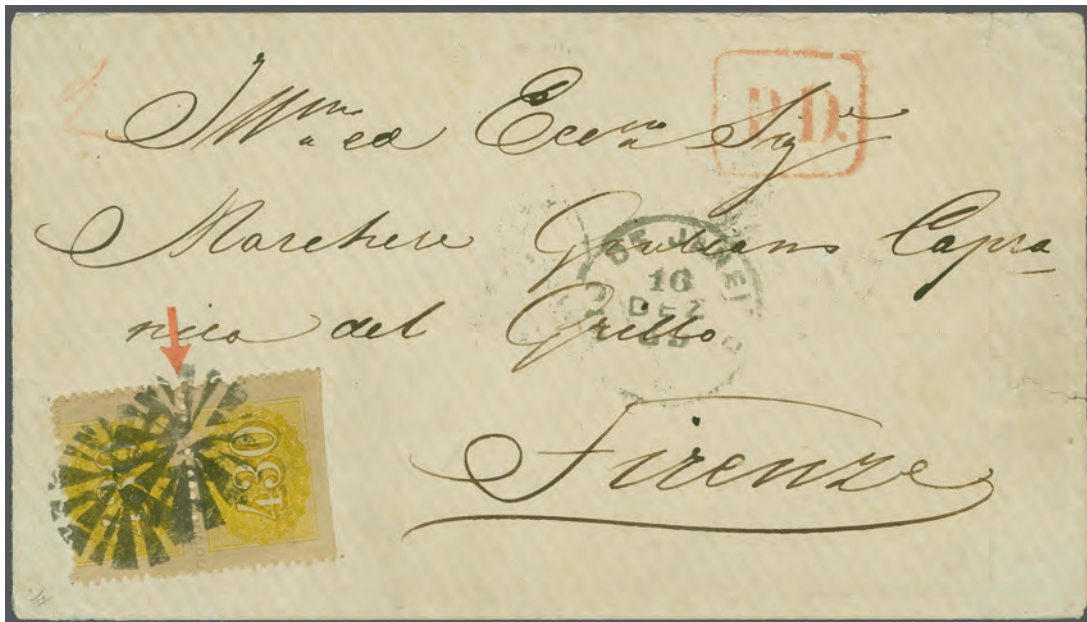 Ill.mo ed Ecc.mo Sig.
P.D.
Marchese Giuliano Capra-
nica del Grillo
Firenze
DE JANEI
16
DEZ
430
430